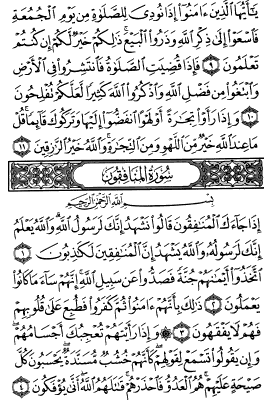 يَٰٓأَيُّهَا ٱلَّذِينَ ءَامَنُوٓا۟ إِذَا نُودِىَ لِلصَّلَوٰةِ مِن يَوْمِ ٱلْجُمُعَةِ
فَٱسْعَوْا۟ إِلَىٰ ذِكْرِ ٱللَّهِ وَذَرُوا۟ ٱلْبَيْعَ ذَٰلِكُمْ خَيْرٌ لَّكُمْ إِن كُنتُمْ
تَعْلَمُونَ ٩ فَإِذَا قُضِيَتِ ٱلصَّلَوٰةُ فَٱنتَشِرُوا۟ فِى ٱلْأَرْضِ
وَٱبْتَغُوا۟ مِن فَضْلِ ٱللَّهِ وَٱذْكُرُوا۟ ٱللَّهَ كَثِيرًا لَّعَلَّكُمْ تُفْلِحُونَ
١٠ وَإِذَا رَأَوْا۟ تِجَٰرَةً أَوْ لَهْوًا ٱنفَضُّوٓا۟ إِلَيْهَا وَتَرَكُوكَ قَآئِمًا قُلْ
مَا عِندَ ٱللَّهِ خَيْرٌ مِّنَ ٱللَّهْوِ وَمِنَ ٱلتِّجَٰرَةِ وَٱللَّهُ خَيْرُ ٱلرَّٰزِقِينَ ١١
سُورَةُ المُنَافِقُونَ
بِسْمِ ٱللَّهِ ٱلرَّحْمَٰنِ ٱلرَّحِيمِ
إِذَا جَآءَكَ ٱلْمُنَٰفِقُونَ قَالُوا۟ نَشْهَدُ إِنَّكَ لَرَسُولُ ٱللَّهِ وَٱللَّهُ يَعْلَمُ
إِنَّكَ لَرَسُولُهُۥ وَٱللَّهُ يَشْهَدُ إِنَّ ٱلْمُنَٰفِقِينَ لَكَٰذِبُونَ ١
ٱتَّخَذُوٓا۟ أَيْمَٰنَهُمْ جُنَّةً فَصَدُّوا۟ عَن سَبِيلِ ٱللَّهِ إِنَّهُمْ سَآءَ مَا كَانُوا۟
يَعْمَلُونَ ٢ ذَٰلِكَ بِأَنَّهُمْ ءَامَنُوا۟ ثُمَّ كَفَرُوا۟ فَطُبِعَ عَلَىٰ قُلُوبِهِمْ
فَهُمْ لَا يَفْقَهُونَ ٣ وَإِذَا رَأَيْتَهُمْ تُعْجِبُكَ أَجْسَامُهُمْ
وَإِن يَقُولُوا۟ تَسْمَعْ لِقَوْلِهِمْ كَأَنَّهُمْ خُشُبٌ مُّسَنَّدَةٌ يَحْسَبُونَ كُلَّ
صَيْحَةٍ عَلَيْهِمْ هُمُ ٱلْعَدُوُّ فَٱحْذَرْهُمْ قَٰتَلَهُمُ ٱللَّهُ أَنَّىٰ يُؤْفَكُونَ ٤